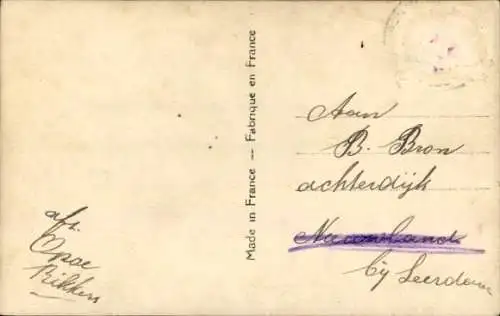 Made in France — Fabrique en France
Aan
B. Bron
achterdijk
bij Leerdam
afz.
Opoe
Bikkers